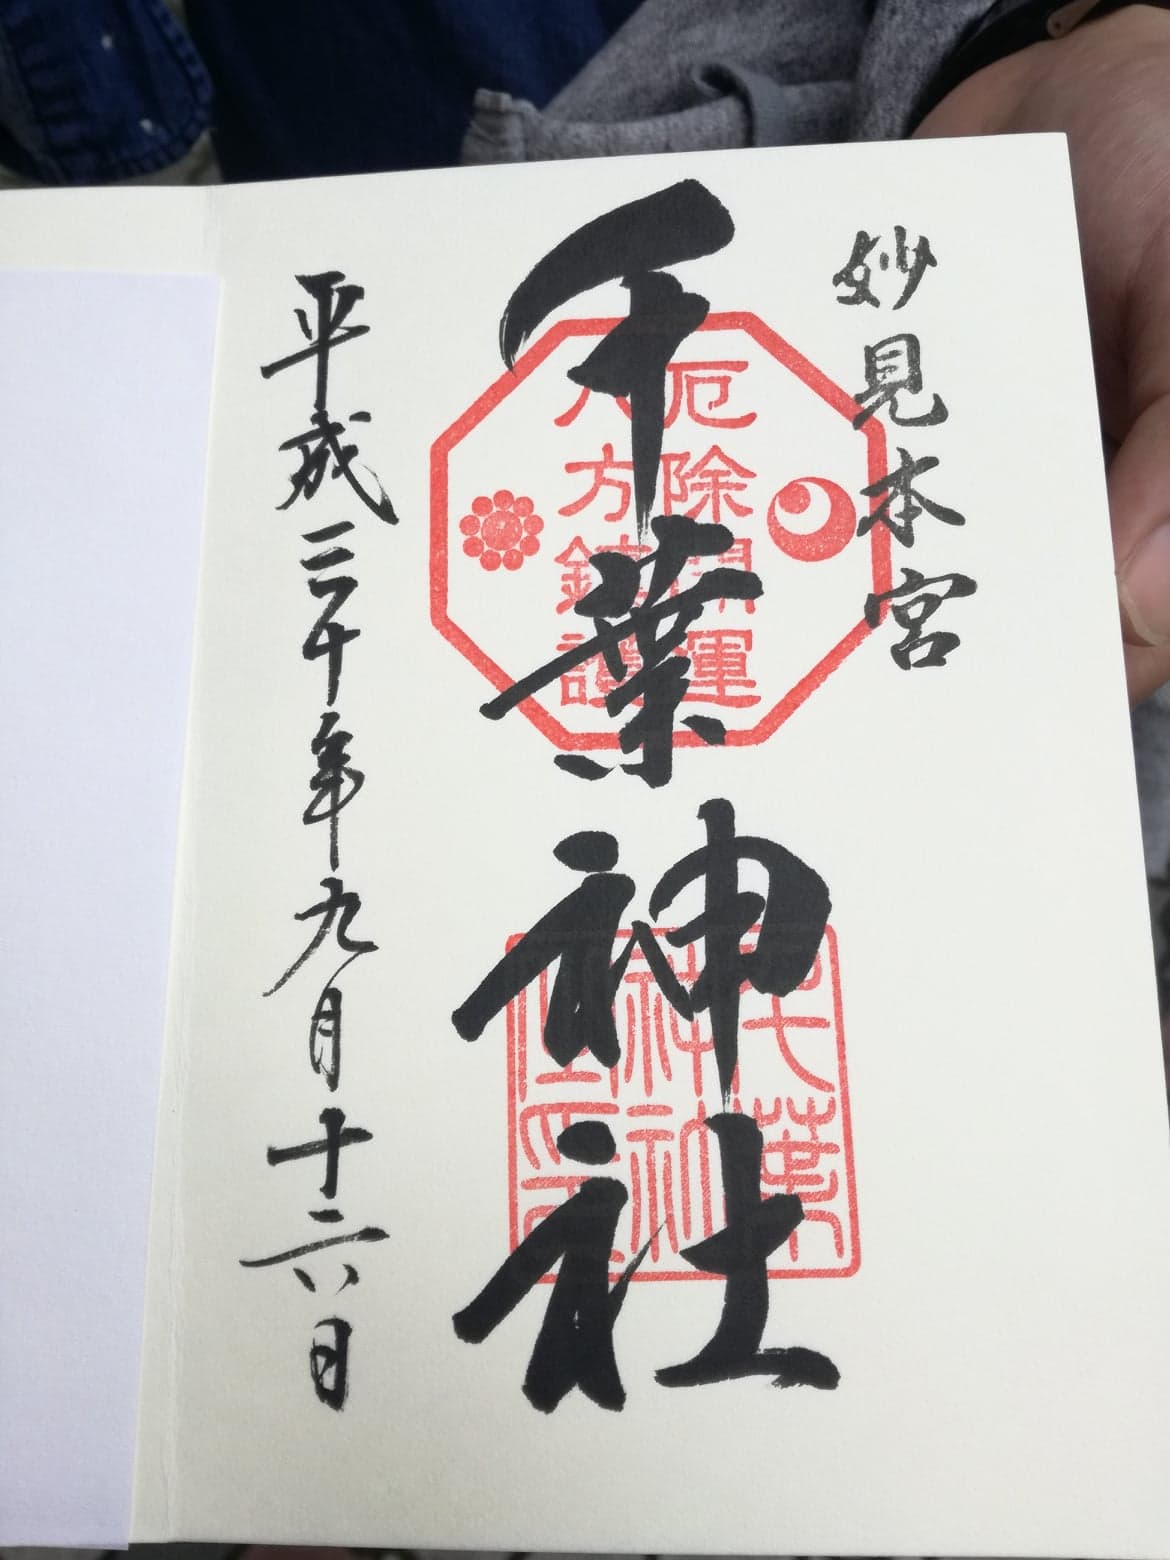 妙見本宮
千葉神社
厄除開運
八方鎮護
千葉
神社
平成三十年九月十六日